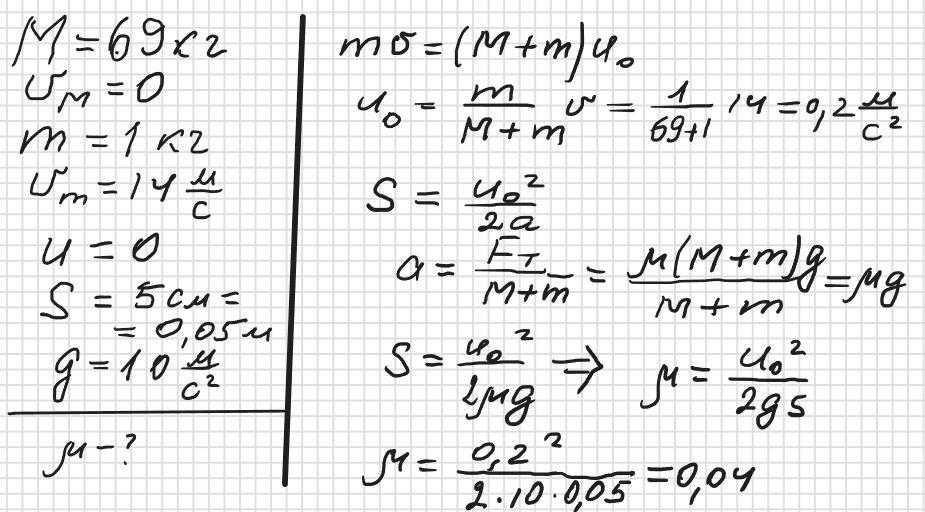 M = 69 кг
υ_M = 0
m = 1 кг
υ_m = 14 м/с
u = 0
S = 5 см =
= 0,05 м
g = 10 м/с²
μ - ?
mυ = (M + m) u₀
u₀ = m/(M + m) υ = 1/(69+1) 14 = 0,2 м/с²
S = u₀²/2a
a = Fт/(M+m) = μ(M+m)g/(M+m) = μg
S = u₀²/2μg ⇒ μ = u₀²/2gS
μ = 0,2²/(2·10·0,05) = 0,04